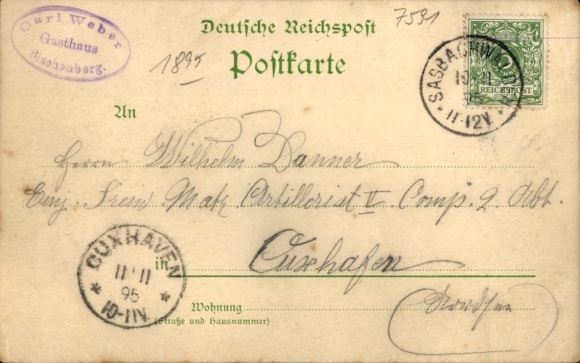 Carl Weber
Gasthaus
Bischenberg.
Deutsche Reichspost
Postkarte
1895
7591
REICHSPOST
SASBACHWALDEN
10 11
95
11-12V.
An
Herrn Wilhelm Danner
Einj. Freiw. Matr. Artillerist V Comp. 2 Abt.
in Cuxhafen
Nordsee
Wohnung
(Straße und Hausnummer)
CUXHAVEN
11 11
95
10-11V.